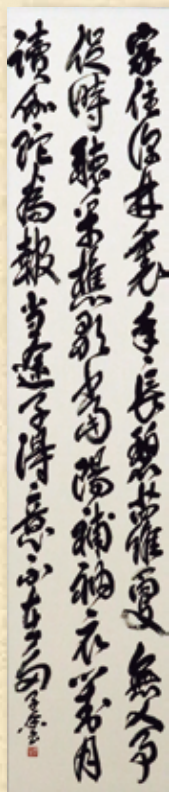 家住深林裏年々長碧蘿更無人事
促時聴采樵歌當陽補衲衣對月
讀伽陀為報当途子得意不在多